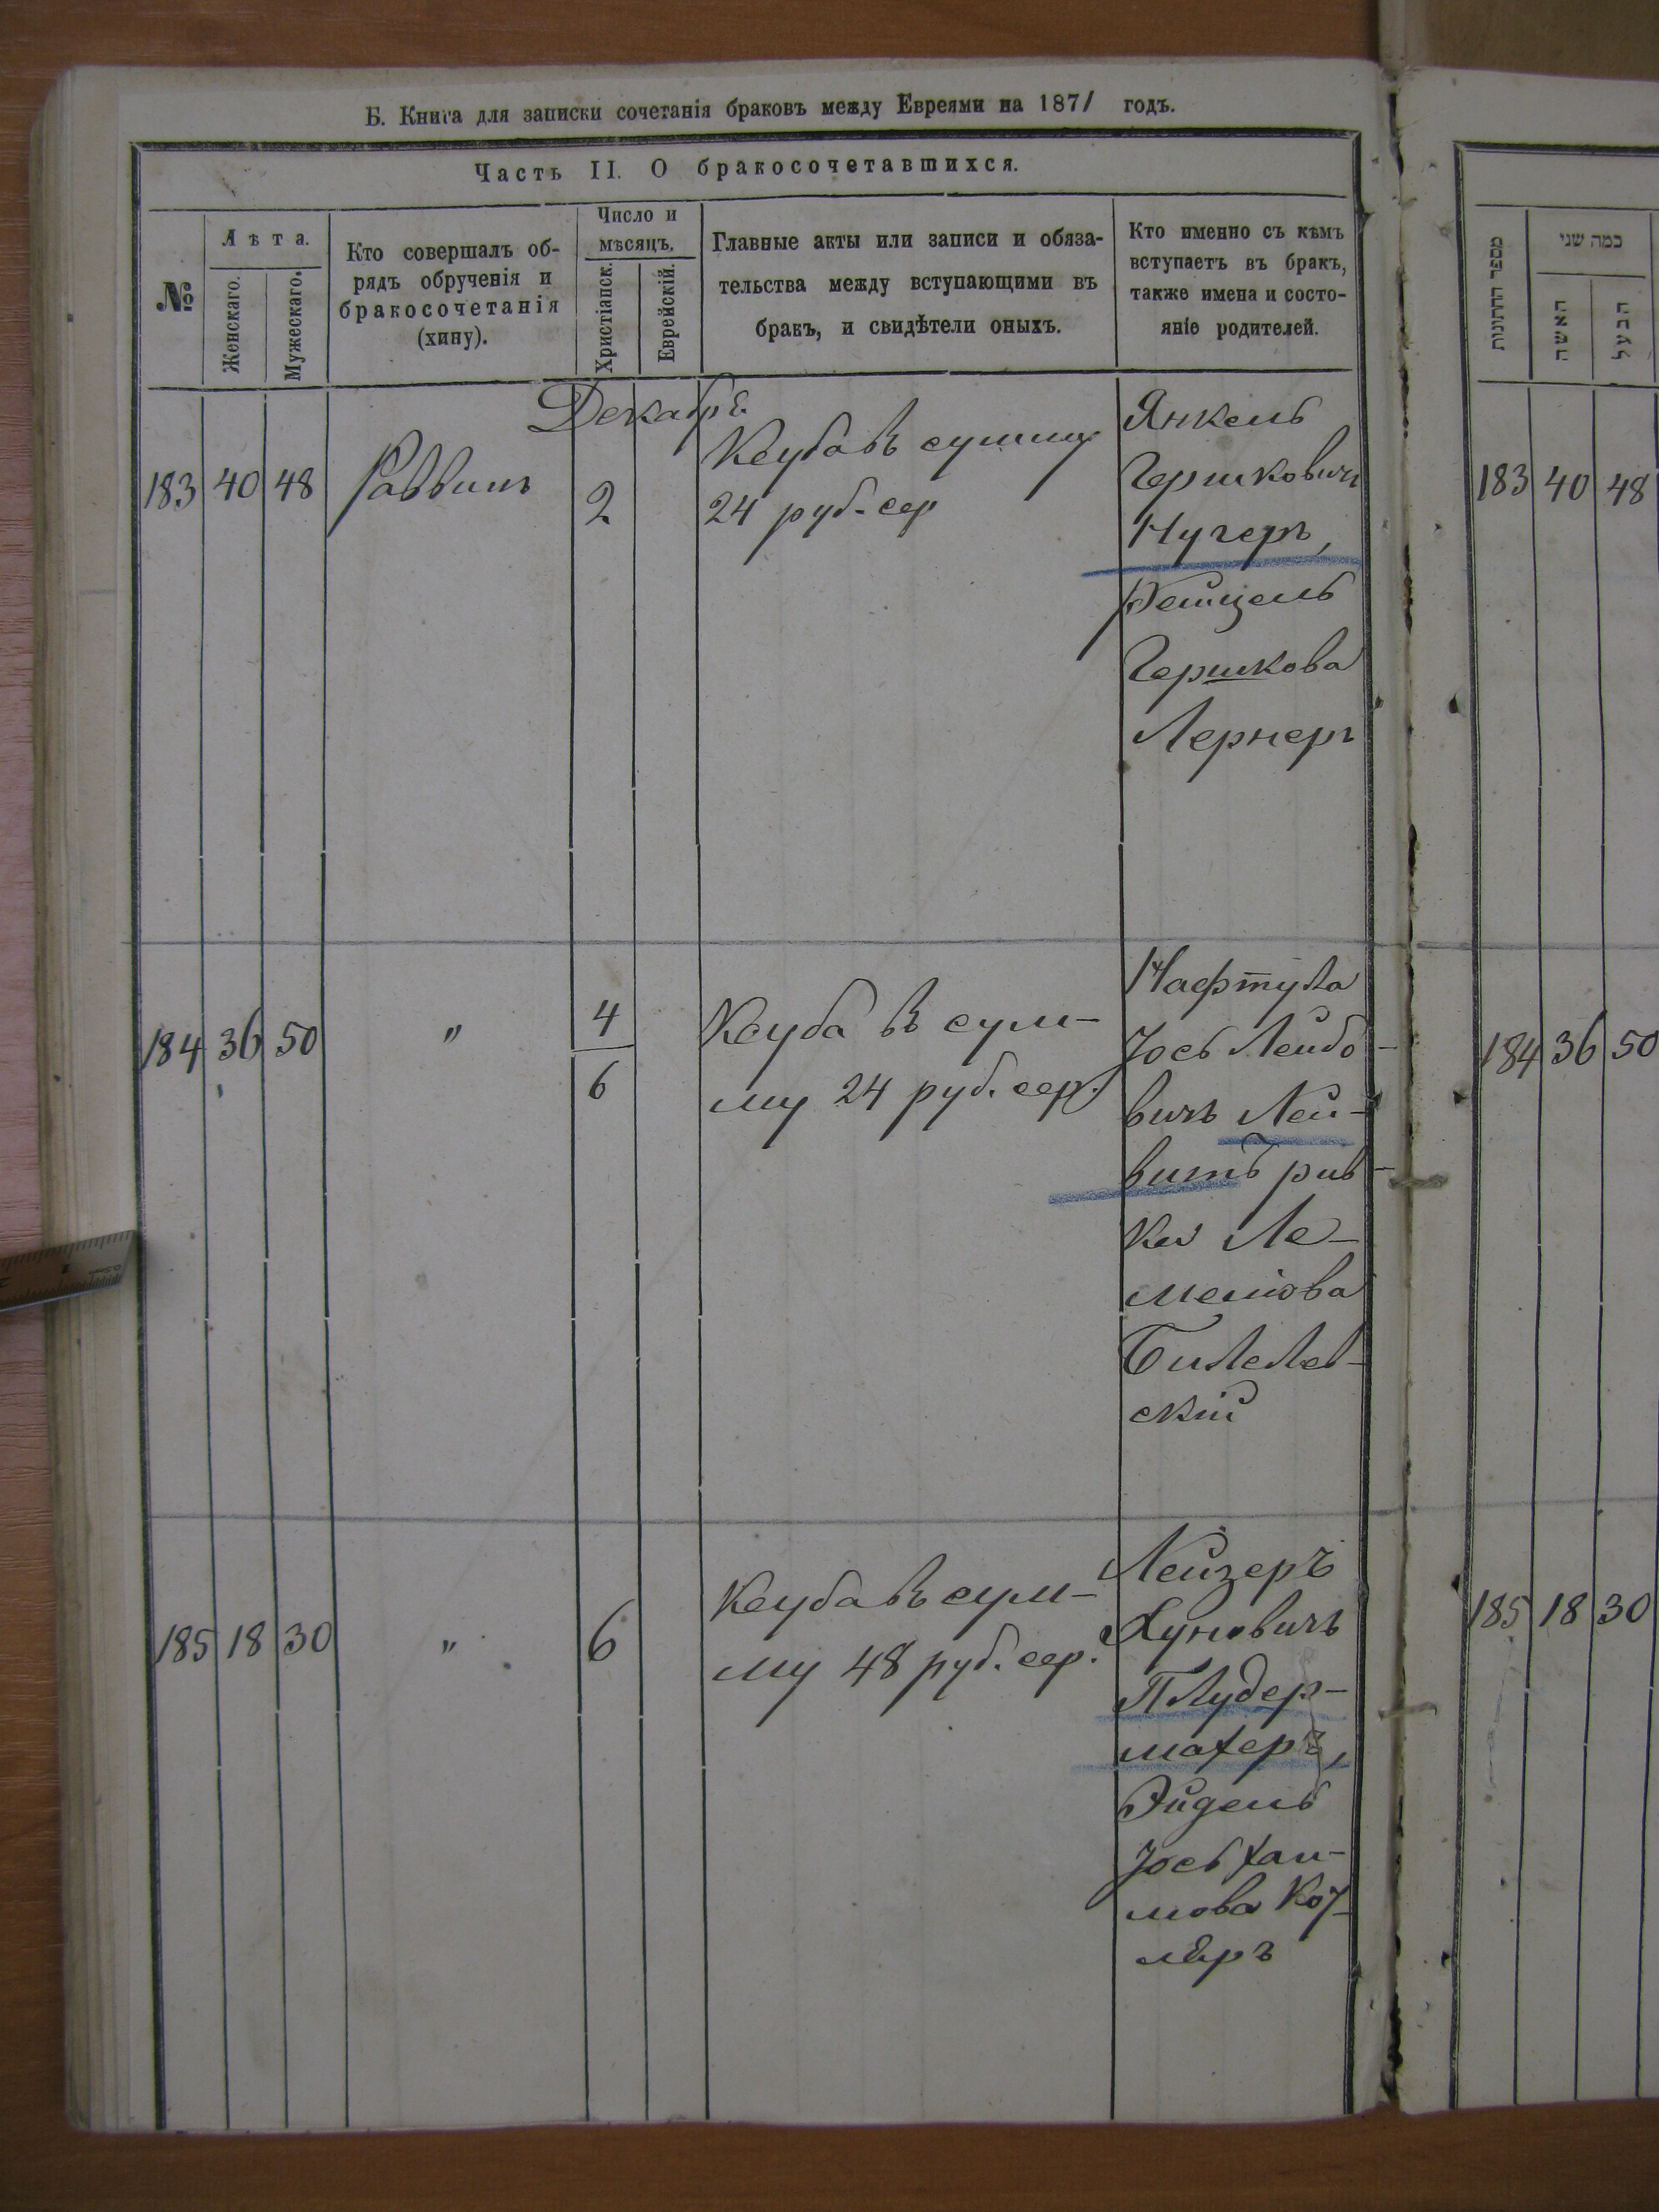 Б. Книга для записки сочетанія браковъ между Евреями на 1871 годъ.
Часть II. О бракосочетавшихся.
№
Лѣта.
Женскаго.
Мужескаго.
Кто совершалъ об-
рядъ обрученія и
бракосочетанія
(хину).
Число и
мѣсяцъ.
Христіанск.
Еврейскій.
Главные акты или записи и обяза-
тельства между вступающими въ
бракъ, и свидѣтели оныхъ.
Кто именно съ кѣмъ
вступаетъ въ бракъ,
также имена и состо-
яніе родителей.
Декабрь
183 40 48 Раввинъ 2
Ксуба въ сумму
24 руб. сер
Янкель
Гершковичъ
Нугеръ,
Гершкова
Лернеръ
184 36 50 " 4
6
Ксуба въ сум-
му 24 руб. сер.
Нафтула
Іось Лейбо-
вичъ Лей-
витъ рив-
ка Ле-
Билелев-
скій
185 18 30 " 6
Ксуба въ сум-
му 48 руб. сер.
Лейзеръ
Хуновичъ
Плудер-
махеръ,
Эйдель
Іось хаи-
мова
מספר החתונות
כמה שני
האשה
הבעל
183 40 48
184 36 50
185 18 30